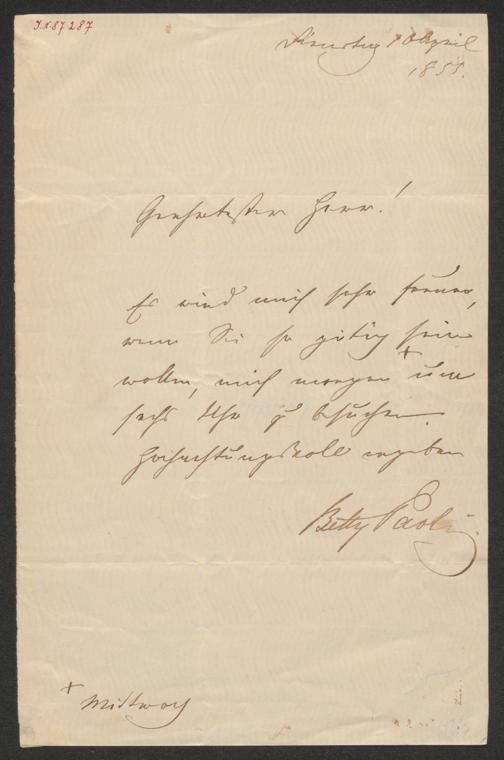 I.N. 87287
Dienstag 10 April
1855.
Geehrtester Herr!
Es wird mich sehr freuen,
wenn Sie so gütig sein
wollen, mich morgen + um
sechs Uhr zu besuchen.
Hochachtungsvoll ergeben
Betty Paoli
+ Mittwoch